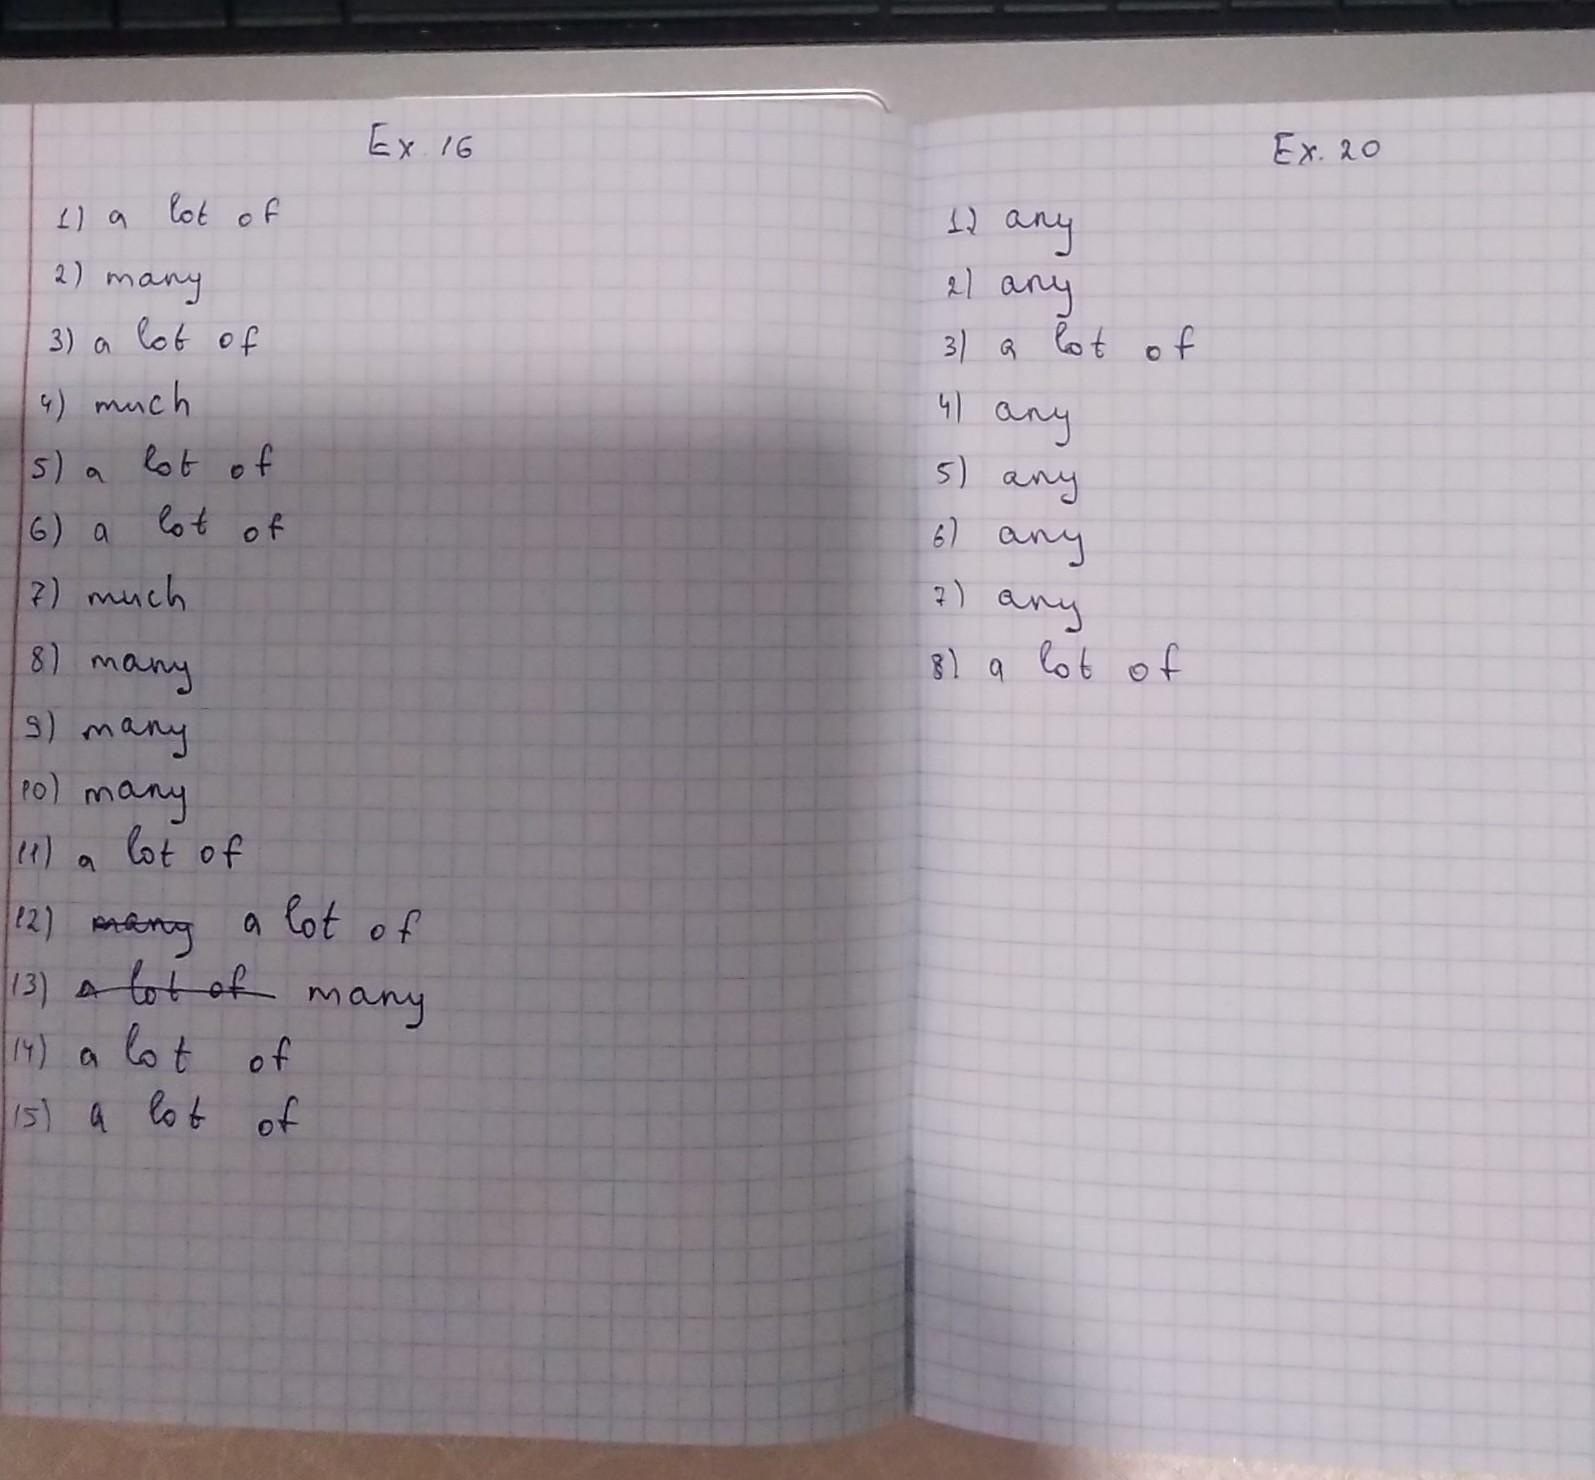 Ex. 16
1) a lot of
2) many
3) a lot of
4) much
5) a lot of
6) a lot of
7) much
8) many
9) many
10) many
11) a lot of
12) many a lot of
13) a lot of many
14) a lot of
15) a lot of
Ex. 20
1) any
2) any
3) a lot of
4) any
5) any
6) any
7) any
8) a lot of